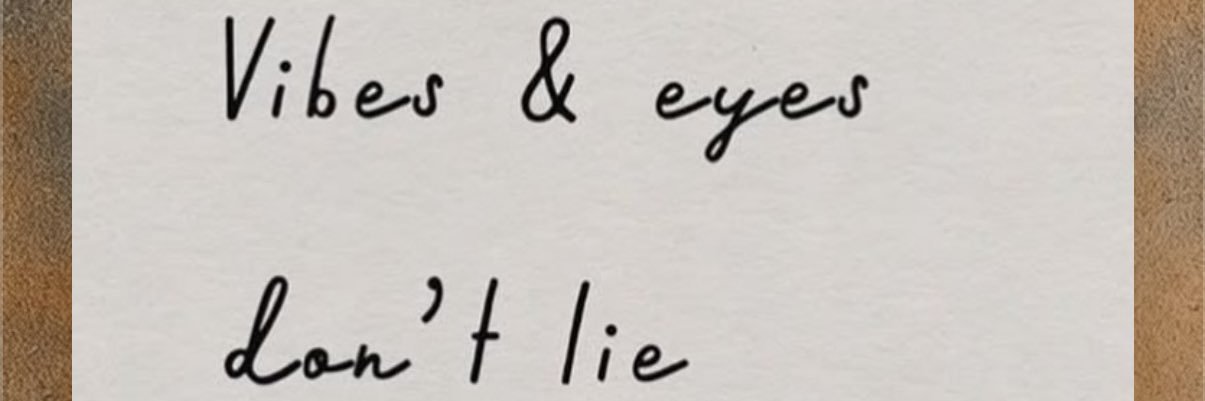 Vibes & eyes
don't lie